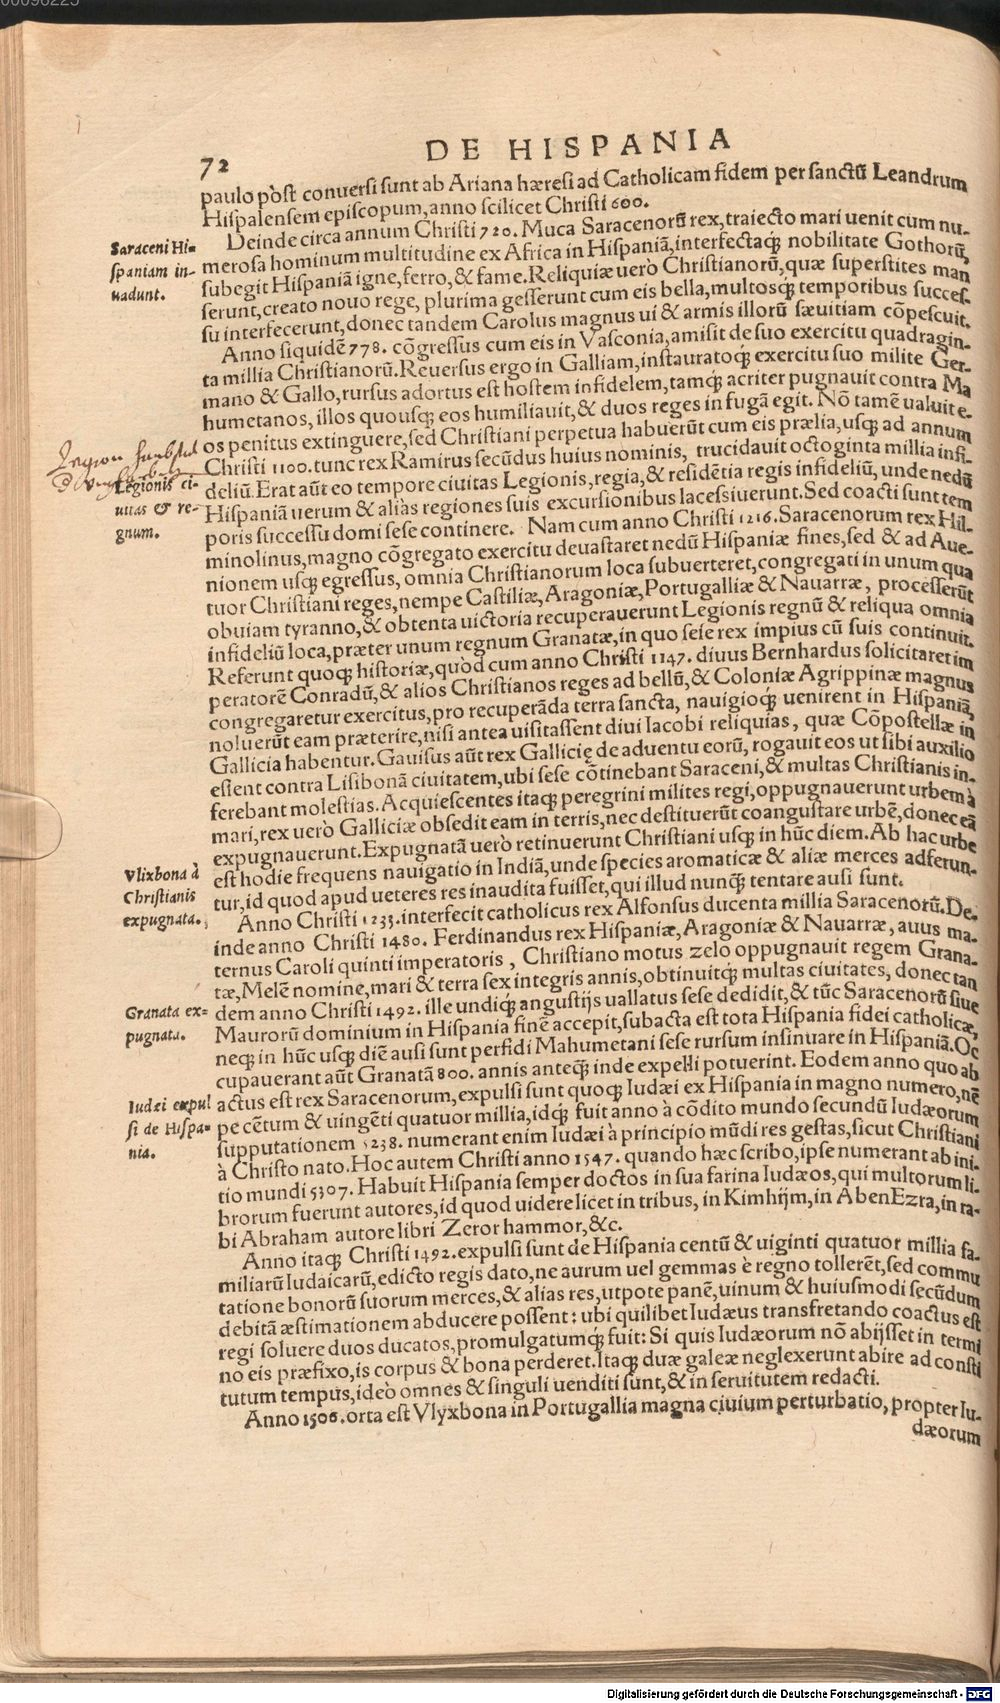 00096225
DE HISPANIA
72
paulo pòst conuersi sunt ab Ariana hæresi ad Catholicam fidem per sanctũ Leandrum
Hispalensem episcopum, anno scilicet Christi 600.
Deinde circa annum Christi 720. Muca Saracenorũ rex, traiecto mari uenit cum nu-
Saraceni Hi-
spaniam in-
uadunt.
merosa hominum multitudine ex Africa in Hispaniã, interfectaq́; nobilitate Gothorũ,
subegit Hispaniã igne, ferro, & fame. Reliquiæ uerò Christianorũ, quæ superstites man
serunt, creato nouo rege, plurima gesserunt cum eis bella, multosq́; temporibus succes-
su interfecerunt, donec tandem Carolus magnus ui & armis illorũ sæuitiam cõpescuit.
Anno siquidẽ 778. cõgressus cum eis in Vasconia, amisit de suo exercitu quadragin-
ta millia Christianorũ. Reuersus ergo in Galliam, instauratoq́; exercitu suo milite Ger-
mano & Gallo, rursus adortus est hostem infidelem, tamq́; acriter pugnauit contra Ma
humetanos, illos quousq; eos humiliauit, & duos reges in fugã egit. Nõ tamẽ ualuit e-
os penitus extinguere, sed Christiani perpetua habuerũt cum eis prælia, usq; ad annum
Christi 1100. tunc rex Ramirus secũdus huius nominis, trucidauit octoginta millia infi-
Legionis ci-
uitas & re-
gnum.
deliũ. Erat aũt eo tempore ciuitas Legionis, regia, & residẽtia regis infideliũ, unde nedũ
Hispaniã uerum & aliàs regiones suis excursionibus lacessiuerunt. Sed coacti sunt tem
poris successu domi sese continere. Nam cum anno Christi 1216. Saracenorum rex Hil-
minolinus, magno cõgregato exercitu deuastaret nedũ Hispaniæ fines, sed & ad Aue-
nionem usq; egressus, omnia Christianorum loca subuerteret, congregati in unum qua
tuor Christiani reges, nempe Castiliæ, Aragoniæ, Portugalliæ & Nauarræ, processerũt
obuiam tyranno, & obtenta uictoria recuperauerunt Legionis regnũ & reliqua omnia
infideliũ loca, præter unum regnum Granatæ, in quo sese rex impius cũ suis continuit.
Referunt quoq; historiæ, quòd cum anno Christi 1147. diuus Bernhardus solicitaret im
peratorẽ Conradũ, & alios Christianos reges ad bellũ, & Coloniæ Agrippinæ magnus
congregaretur exercitus, pro recuperãda terra sancta, nauigioq́; uenirent in Hispaniã,
noluerũt eam præterire, nisi antea uisitassent diui Iacobi reliquias, quæ Cõpostellæ in
Gallicia habentur. Gauisus aũt rex Gallicię de aduentu eorũ, rogauit eos ut sibi auxilio
essent contra Lisibonã ciuitatem, ubi sese cõtinebant Saraceni, & multas Christianis in-
ferebant molestias. Acquiescentes itaq; peregrini milites regi, oppugnauerunt urbem à
mari, rex uerò Galliciæ obsedit eam in terris, nec destituerũt coangustare urbẽ, donec eã
expugnauerunt. Expugnatã uerò retinuerunt Christiani usq; in hũc diem. Ab hac urbe
Vlixbona à
Christianis
expugnata.
est hodie frequens nauigatio in Indiã, unde species aromaticæ & aliæ merces adferun-
tur, id quod apud ueteres res inaudita fuisset, qui illud nunq̃ tentare ausi sunt.
Anno Christi 1233. interfecit catholicus rex Alfonsus ducenta millia Saracenorũ. De-
inde anno Christi 1480. Ferdinandus rex Hispaniæ, Aragoniæ & Nauarræ, auus ma-
ternus Caroli quinti imperatoris, Christiano motus zelo oppugnauit regem Grana-
tæ, Melẽ nomine, mari & terra sex integris annis, obtinuitq́; multas ciuitates, donec tan
Granata ex-
pugnata.
dem anno Christi 1492. ille undiq; angustijs uallatus sese dedidit, & tũc Saracenorũ siue
Maurorũ dominium in Hispania finẽ accepit, subacta est tota Hispania fidei catholicæ,
neq; in hũc usq; diẽ ausi sunt perfidi Mahumetani sese rursum insinuare in Hispaniã. Oc
cupauerant aũt Granatã 800. annis anteq̃ inde expelli potuerint. Eodem anno quo ab
Iudæi expul
si de Hispa-
nia.
actus est rex Saracenorum, expulsi sunt quoq; Iudæi ex Hispania in magno numero, nẽ
pe cẽtum & uingẽti quatuor millia, idq́; fuit anno à cõdito mundo secundũ Iudæorum
supputationem 5238. numerant enim Iudæi à principio mũdi res gestas, sicut Christiani
à Christo nato. Hoc autem Christi anno 1547. quando hæc scribo, ipse numerant ab ini-
tio mundi 5307. Habuit Hispania semper doctos in sua farina Iudæos, qui multorum li-
brorum fuerunt autores, id quod uidere licet in tribus, in Kimhijm, in Aben Ezra, in ra-
bi Abraham autore libri Zeror hammor, &c.
Anno itaq; Christi 1492. expulsi sunt de Hispania centũ & uiginti quatuor millia fa-
miliarũ Iudaicarũ, edicto regis dato, ne aurum uel gemmas è regno tollerẽt, sed commu
tatione bonorũ suorum merces, & alias res, utpote panẽ, uinum & huiusmodi secũdum
debitã æstimationem abducere possent: ubi quilibet Iudæus transfretando coactus est
regi soluere duos ducatos, promulgatumq́; fuit: Si quis Iudæorum nõ abijsset in termi
no eis præfixo, is corpus & bona perderet. Itaq; duæ galeæ neglexerunt abire ad consti
tutum tempus, ideò omnes & singuli uenditi sunt, & in seruitutem redacti.
Anno 1506. orta est Vlyxbona in Portugallia magna ciuium perturbatio, propter Iu-
dæorum
Digitalisierung gefördert durch die Deutsche Forschungsgemeinschaft - DFG